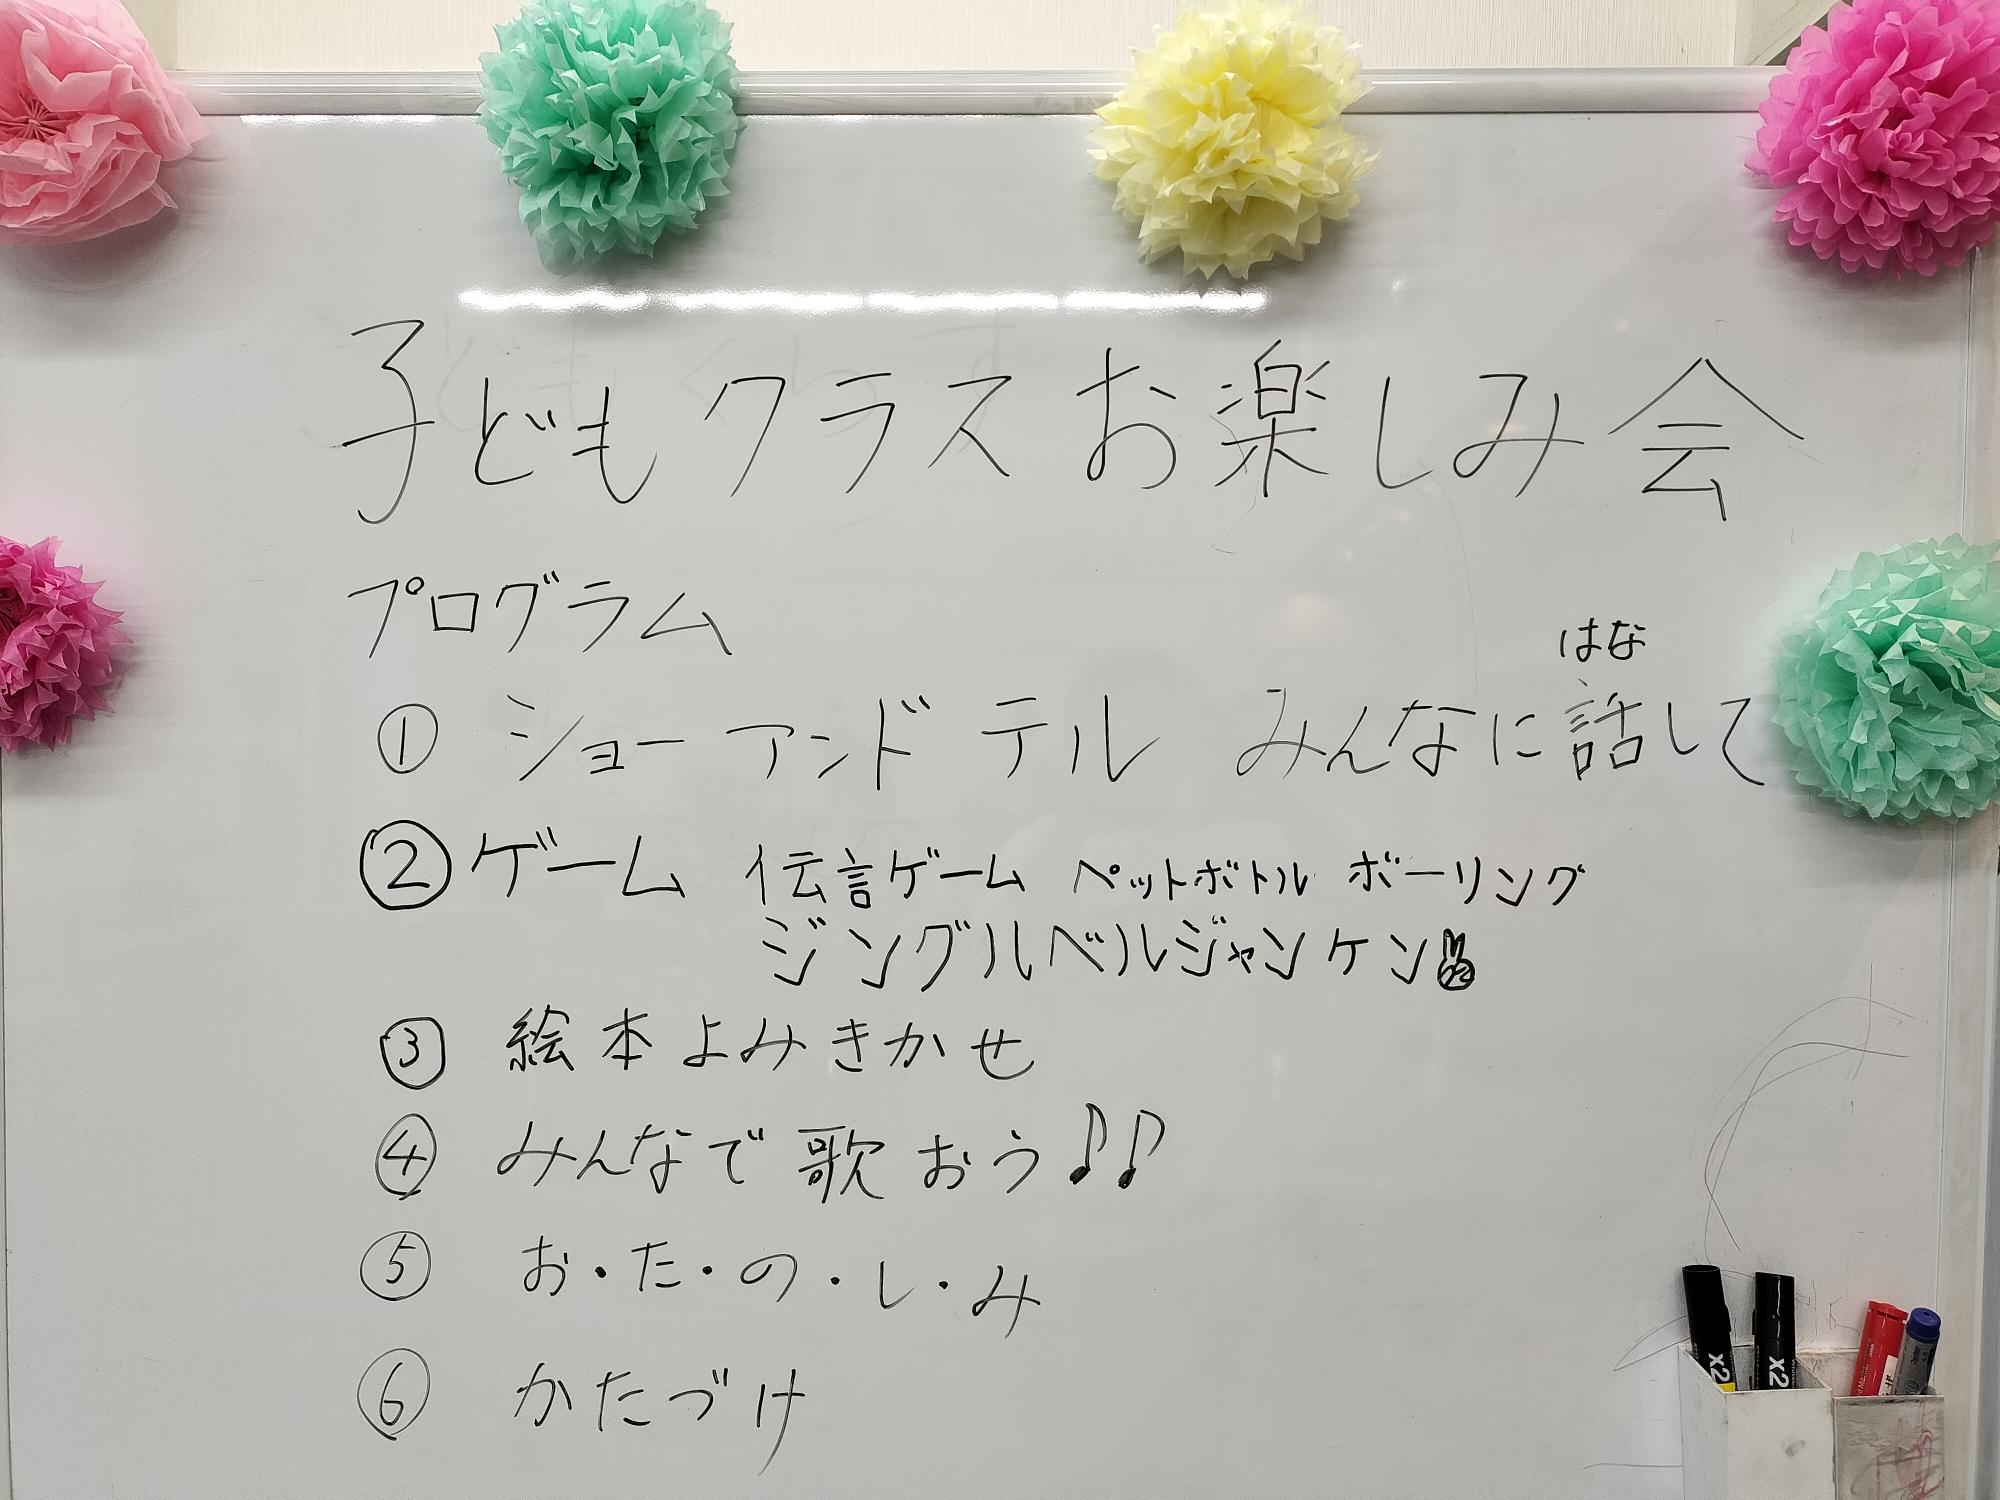 子どもクラスお楽しみ会
プログラム
はな
① ショー アンド テル みんなに話して
② ゲーム 伝言ゲーム ペットボトル ボーリング
ジングルベルジャンケン✌
③ 絵本よみきかせ
④ みんなで歌おう♪♪
⑤ お・た・の・し・み
⑥ かたづけ
X2
X2